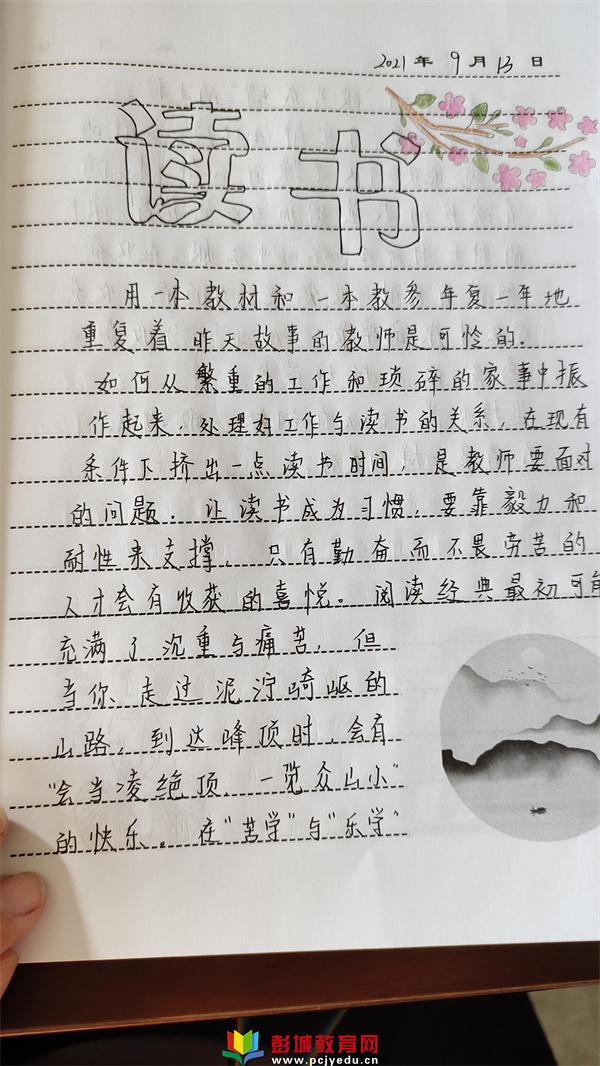 2021年 9月 13日
读书
用一本教材和一本教参年复一年地
重复着昨天故事的教师是可怜的.
如何从繁重的工作和琐碎的家事中振
作起来,处理好工作与读书的关系,在现有
条件下挤出一点读书时间,是教师要面对
的问题.让读书成为习惯,要靠毅力和
耐性来支撑,只有勤奋而不畏劳苦的
人才会有收获的喜悦。阅读经典最初可能
充满了沉重与痛苦,但
当你走过泥泞骑岖的
山路,到达峰顶时,会有
“会当凌绝顶,一览众山小”
的快乐。在“苦学”与“乐学”
彭城教育网
www.pcjyedu.cn